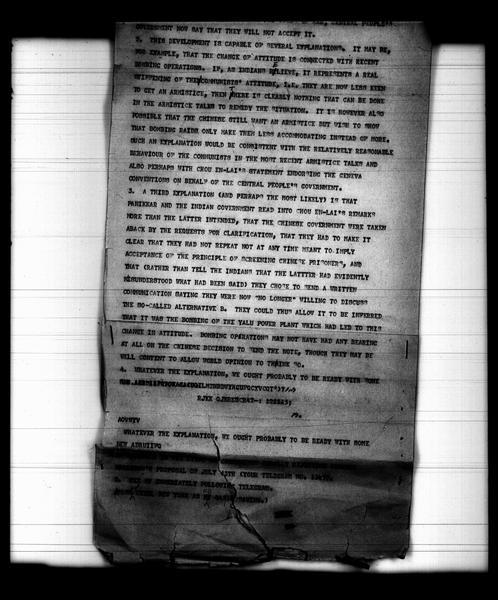 GOVERNMENT NOW SAY THAT THEY WILL NOT ACCEPT IT.
2. THIS DEVELOPMENT IS CAPABLE OF SEVERAL EXPLANATIONS. IT MAY BE,
FOR EXAMPLE, THAT THE CHANGE OF ATTITUDE IS CONNECTED WITH RECENT
BOMBING OPERATIONS. IF, AS INDIANS BELIEVE, IT REPRESENTS A REAL
STIFFENING OF THE COMMUNISTS' ATTITUDE, I.E. THEY ARE NOW LESS KEEN
TO GET AN ARMISTICE, THEN THERE IS CLEARLY NOTHING THAT CAN BE DONE
IN THE ARMISTICE TALKS TO REMEDY THE SITUATION. IT IS HOWEVER ALSO
POSSIBLE THAT THE CHINESE STILL WANT AN ARMISTICE BUT WISH TO SHOW
THAT BOMBING RAIDS ONLY MAKE THEM LESS ACCOMMODATING INSTEAD OF MORE.
SUCH AN EXPLANATION WOULD BE CONSISTENT WITH THE RELATIVELY REASONABLE
BEHAVIOUR OF THE COMMUNISTS IN THE MOST RECENT ARMISTICE TALKS AND
ALSO PERHAPS WITH CHOU EN-LAI'S STATEMENT ENDORSING THE GENEVA
CONVENTIONS ON BEHALF OF THE CENTRAL PEOPLE'S GOVERNMENT.
3. A THIRD EXPLANATION (AND PERHAPS THE MOST LIKELY) IS THAT
PANIKKAR AND THE INDIAN GOVERNMENT READ INTO CHOU EN-LAI'S REMARKS
MORE THAN THE LATTER INTENDED, THAT THE CHINESE GOVERNMENT WERE TAKEN
ABACK BY THE REQUESTS FOR CLARIFICATION, THAT THEY HAD TO MAKE IT
CLEAR THAT THEY HAD NOT REPEAT NOT AT ANY TIME MEANT TO IMPLY
ACCEPTANCE OF THE PRINCIPLE OF SCREENING CHINESE PRISONERS, AND
THAT (RATHER THAN TELL THE INDIANS THAT THE LATTTER HAD EVIDENTLY
MISUNDERSTOOD WHAT HAD BEEN SAID) THEY CHOSE TO SEND A WRITTEN
COMMUNICATION SAYING THEY WERE NOW "NO LONGER" WILLING TO DISCUSS
THE SO-CALLED ALTERNATIVE B. THEY COULD THUS ALLOW IT TO BE INFERRED
THAT IT WAS THE BOMBING OF THE YALU POWER PLANT WHICH HAD LED TO THIS
CHANGE IN ATTITUDE. BOMBING OPERATIONS MAY NOT HAVE HAD ANY BEARING
AT ALL ON THE CHINESE DECISION TO SEND THE NOTE, THOUGH THEY MAY BE
WELL CONTENT TO ALLOW WORLD OPINION TO THINK SO.
4. WHATEVER THE EXPLANATION, WE OUGHT PROBABLY TO BE READY WITH SOME
WHATEVER THE EXPLANATION, WE OUGHT PROBABLY TO BE READY WITH SOME
NEW
PROPOSAL OF JULY (YOUR TELEGRAM NO.
IMMEDIATELY FOLLOWING TELEGRAM.
NEW YORK AS MY